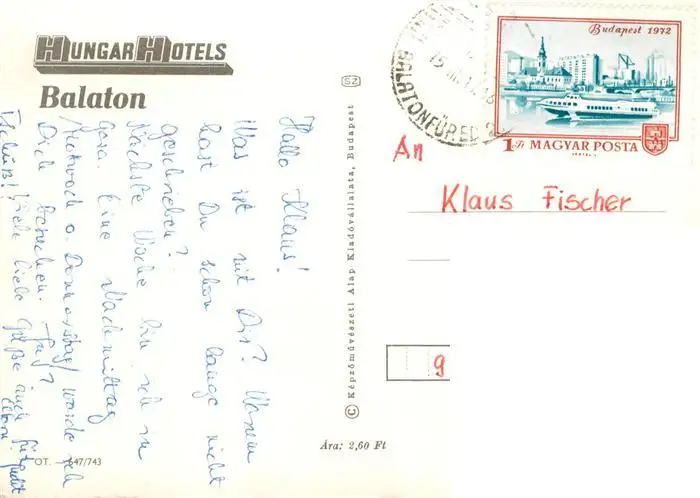 HUNGARHOTELS
Balaton
Hallo Klaus!
Was ist mit Dir? Warum
hast Du schon lange nicht
geschrieben?
Nächste Woche bin ich in
Gera. Eine Nachmittag
Mittwoch o. Donnerstag/ werde ich
Dich besuchen. Ja?
Tschüß! Viele liebe Grüße auch für
Eltern. Judit
OT. — 647/743
SZ
© Képzőművészeti Alap Kiadóvállalata, Budapest
Ára: 2,60 Ft
BALATONFÜRED
Budapest 1972
1 Ft MAGYAR POSTA
An
Klaus Fischer
9